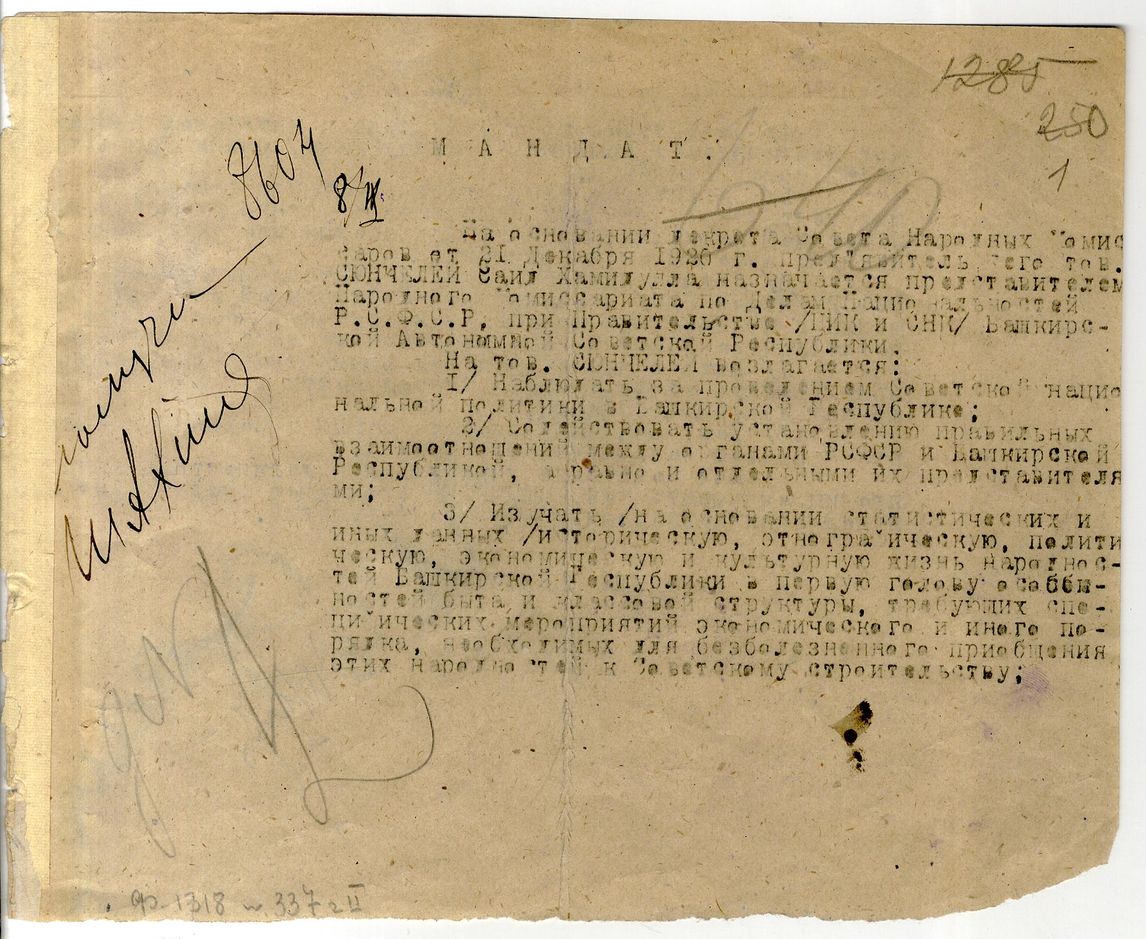 1285
250
1
8604
8/III
М А Н Д А Т.
На основании декрета Совета Народных Комис
саров от 21 Декабря 1920 г. предъявитель сего тов.
СЮНЧЕЛЕЙ Саид Хамидулла назначается представителем
Народного Комиссариата по Делам Национальностей
Р.С.Ф.С.Р. при Правительстве /ЦИК и СНК/ Башкирс-
кой Автономной Советской Республики.
На тов. СЮНЧЕЛЕЯ возлагается:
1/ Наблюдать за проведением Советской нацио
нальной политики в Башкирской Республике;
2/ Содействовать установлению правильных
взаимоотношений между органами РСФСР и Башкирской
Республикой, а равно и отдельными их представителя
ми;
3/ Изучать /на основании статистических и
иных данных /историческую, этнографическую, полити
ческую, экономическую и культурную жизнь народнос-
тей Башкирской Республики в первую голову особы-
ностей быта и классовой структуры, требующих спе-
цифических мероприятий экономического и иного по-
рядка, необходимых для безболезненного приобщения
этих народностей к Советскому строительству;
ф-1318 337 II